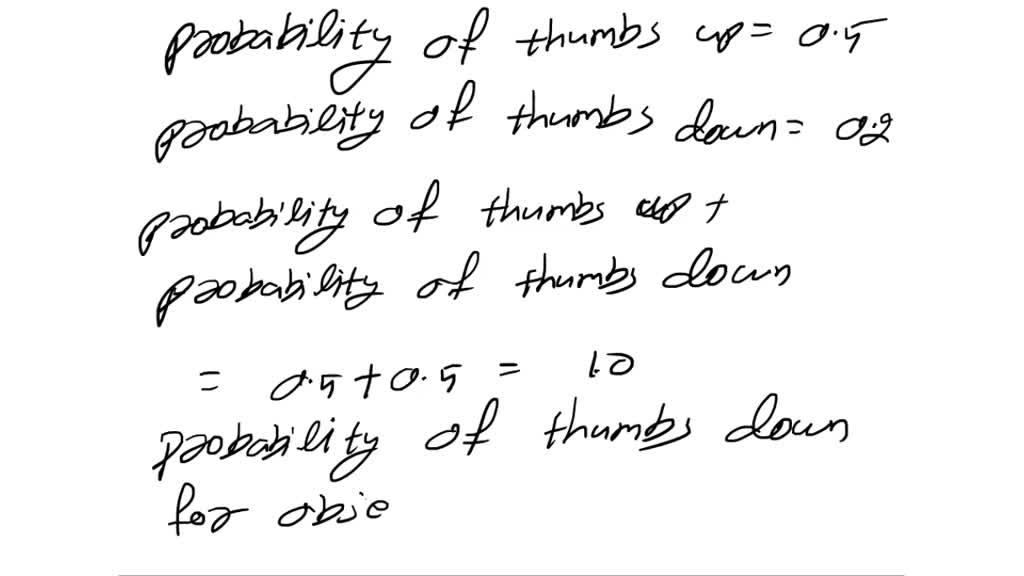 probability of thumbs up = 0.5
probability of thumbs down = 0.2
probability of thumbs up +
probability of thumbs down
= 0.5 + 0.5 = 1.0
probability of thumbs down
for obje